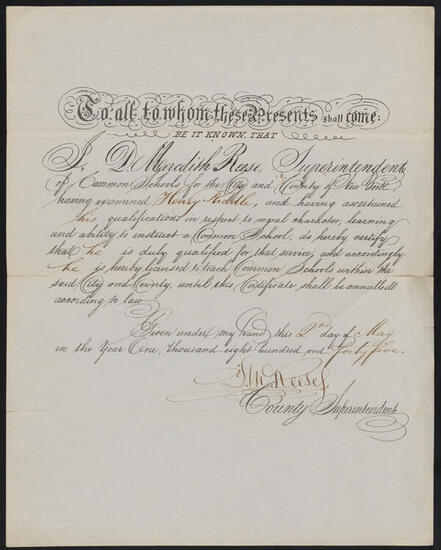 To all to whom these Presents shall come:
BE IT KNOWN, THAT
I, D. Meredith Reese, Superintendent
of Common Schools for the City and County of New York
having examined Henry Kiddle, and having ascertained
his qualifications in respect to moral character, learning
and ability to instruct a Common School, do hereby certify
that he is duly qualified for that service, and accordingly
he is hereby licensed to teach Common Schools within the
said City and County, until this Certificate shall be annulled
according to law.
Given under my hand this 2nd day of May
in the Year One, thousand eight hundred and Forty five.
D.M. Reese
County Superintendent